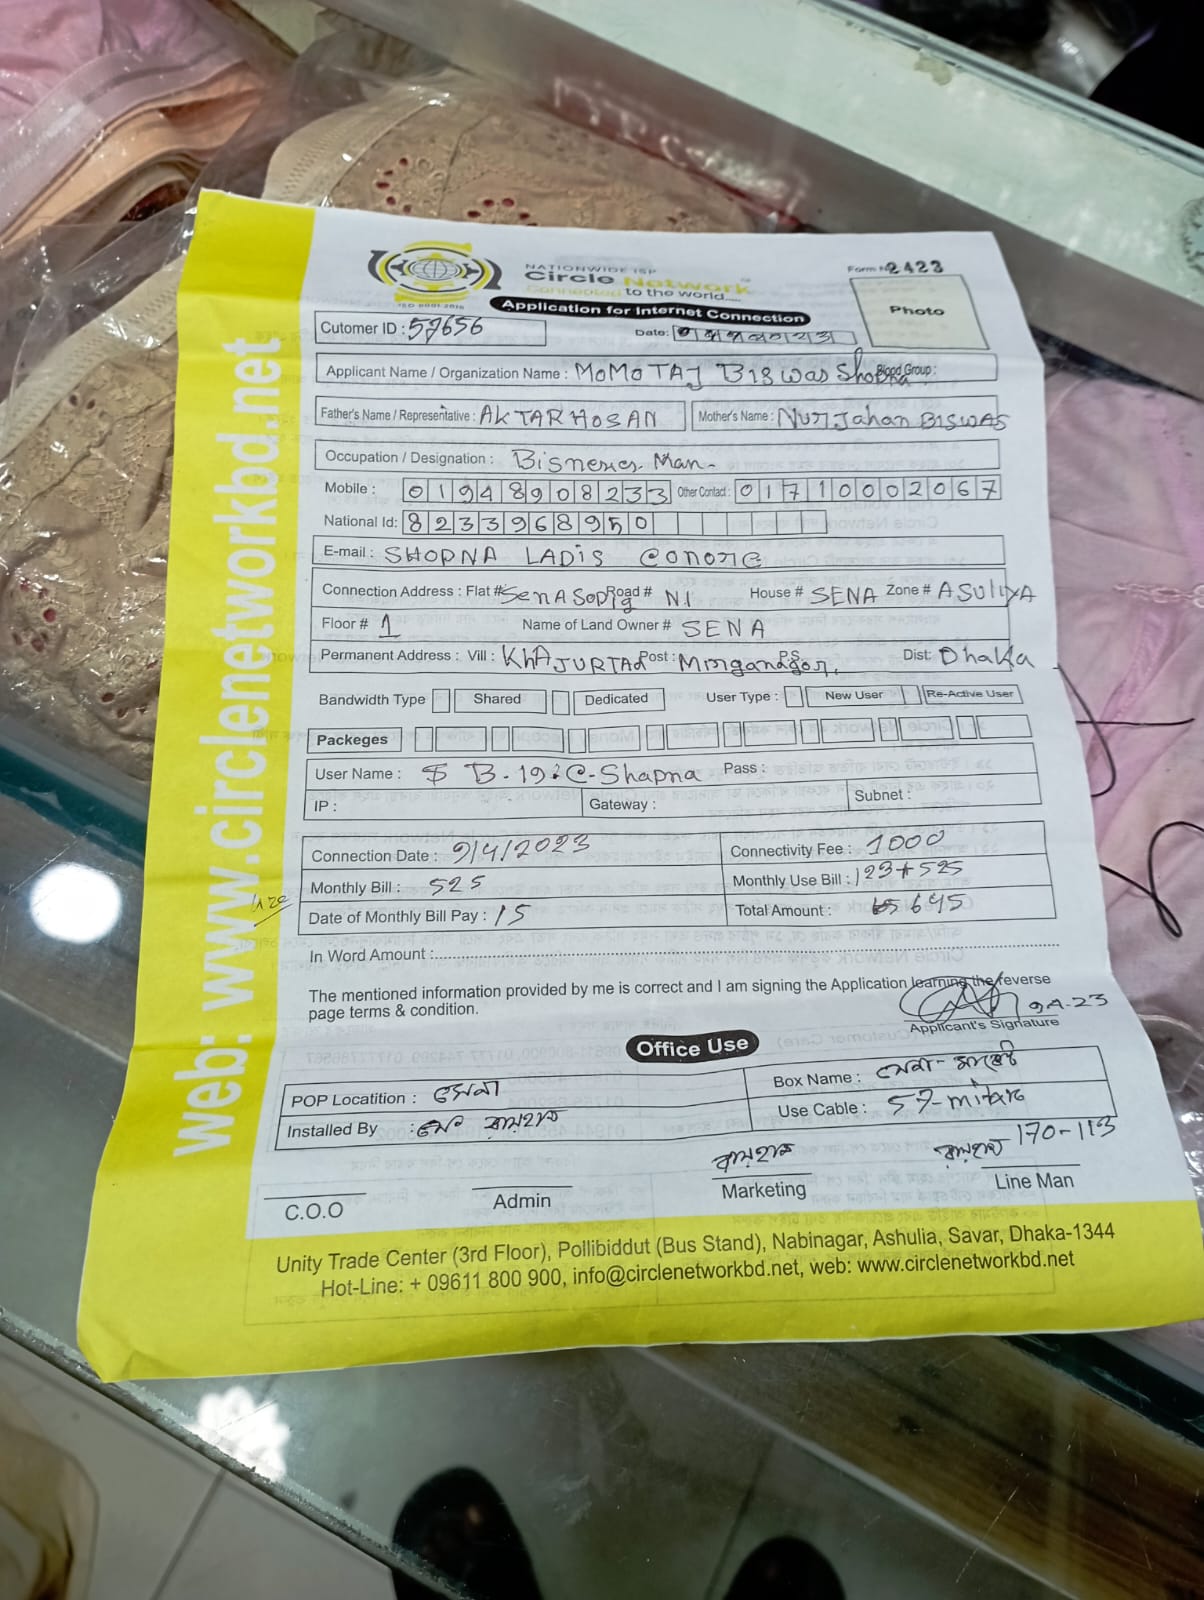 NATIONWIDE ISP
Circle Network
Connected to the world.....
ISO 9001:2015
Form № 2423
Photo
Application for Internet Connection
Cutomer ID : 57656
Date:
Applicant Name / Organization Name : MOMOTAJ BISWAS Shopna Blood Group :
Father's Name / Representative : AKTAR HOSAN Mother's Name : NurJahan BISWAS
Occupation / Designation : Bisneses Man-
Mobile : 01948908233 Other Contact : 01710002067
National Id: 8233968950
E-mail : SHOPNA LADIS
Connection Address : Flat # Road # N1 House # SENA Zone # ASULIYA
Floor # 1 Name of Land Owner # SENA
Permanent Address : Vill : KhAJURTAd Post : P.S Dist: Dhaka
Bandwidth Type Shared Dedicated User Type : New User Re-Active User
Packeges
User Name : B.19:C-Shapna Pass :
IP : Gateway : Subnet :
Connection Date : 9/4/2023 Connectivity Fee : 1000
Monthly Bill : 525 Monthly Use Bill : 123+525
Date of Monthly Bill Pay : 15 Total Amount : 645
In Word Amount :
The mentioned information provided by me is correct and I am signing the Application learning the reverse
page terms & condition.
9-4-23
Applicant's Signature
Office Use
POP Locatition : সেনা Box Name : সেনা- মার্কেট
Installed By : মোঃ Use Cable : 57-
170-113
C.O.O Admin Marketing Line Man
Unity Trade Center (3rd Floor), Pollibiddut (Bus Stand), Nabinagar, Ashulia, Savar, Dhaka-1344
Hot-Line: + 09611 800 900, info@circlenetworkbd.net, web: www.circlenetworkbd.net
web: www.circlenetworkbd.net